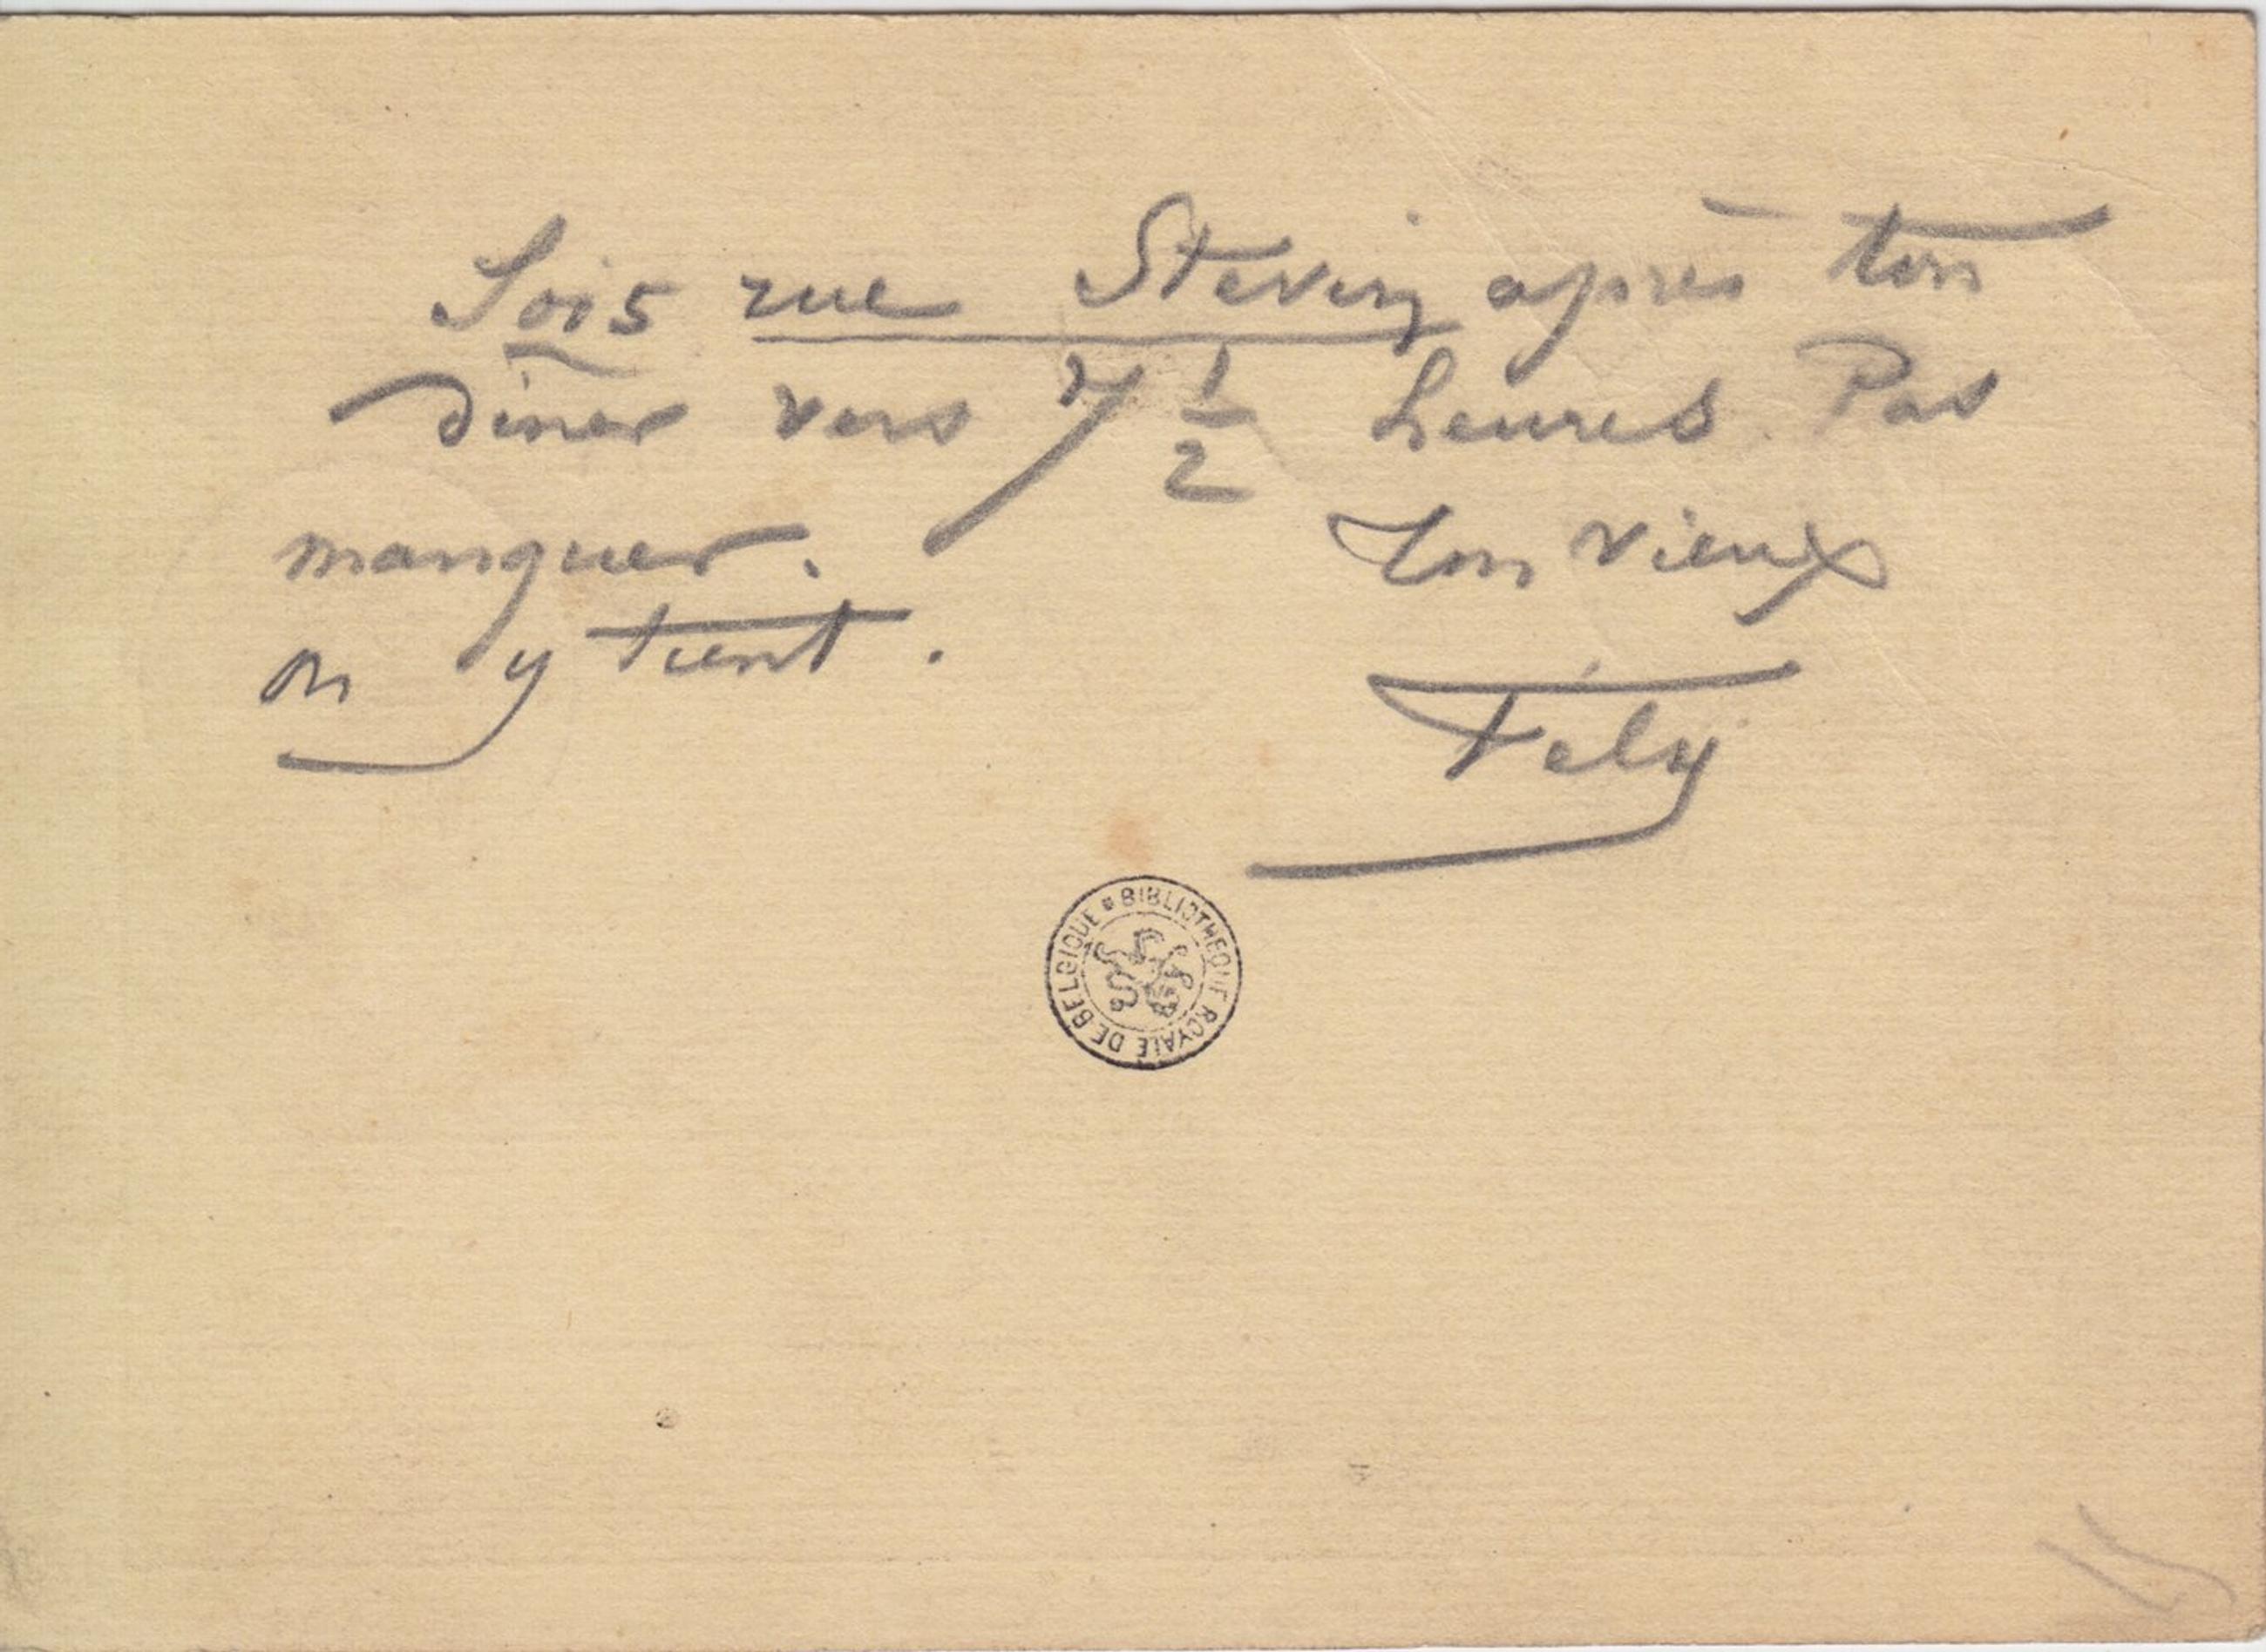 Sois rue Stevin après ton
diner vers 7 1/2 heures. Pas
manquer.
on y tient.
Ton vieux
Fély
BIBLIOTHEQUE ROYALE DE BELGIQUE